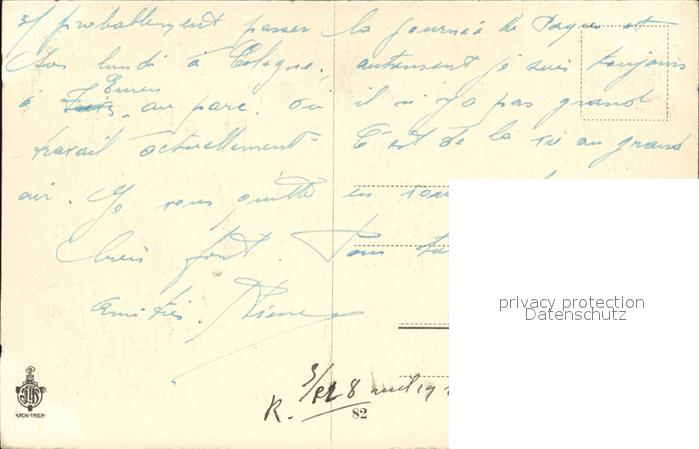 3/ probablement passer la journée de Paques et
son lundi à Cologne, autrement je suis toujours
Euren
à au parc. où il n'y a pas grand
travail actuellement. C'est de la vie au grand
air. Je vous quitte en vous
bien fort. Pour
Amitiés. Pierre
R. 8 82
KRON-TRIER
privacy protection
Datenschutz